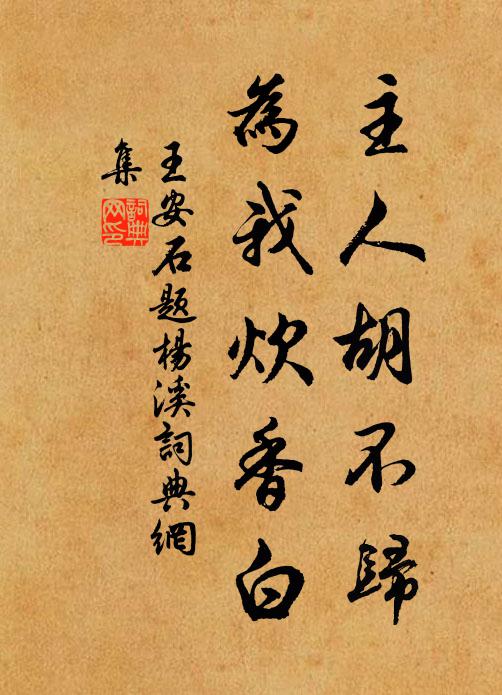 主人胡不歸
為我炊香白
王安石題楊溪詞典網
集
詞典
网印